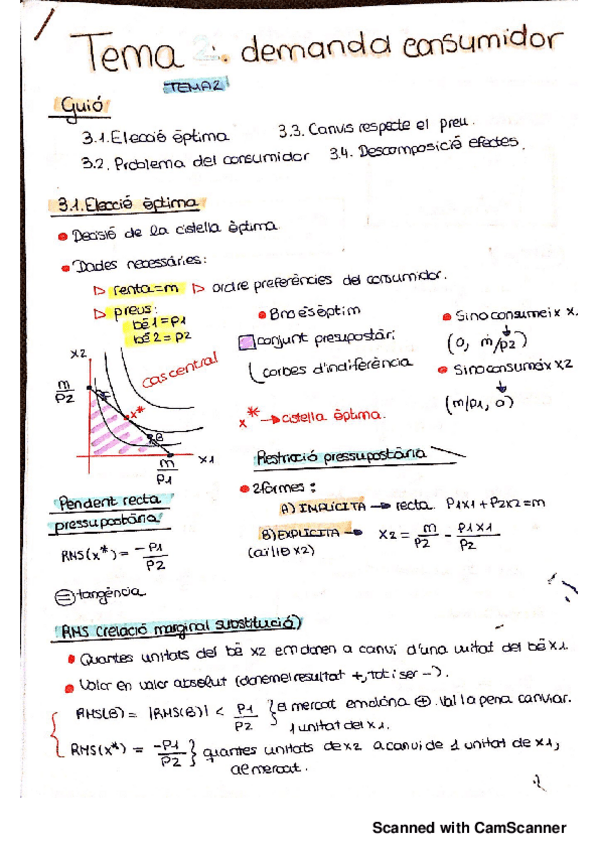 Tema 2: demanda consumidor
TEMA 2
Guió
3.1. Elecció òptima
3.3. Canvis respecte el preu.
3.2. Problema del consumidor
3.4. Descomposició efectes.
3.1. Elecció òptima
• Decisió de la cistella òptima
• Dades necessáries:
▷ renta = m ▷ ordre preferències del consumidor.
▷ preus:
bé 1 = p1
bé 2 = p2
• B no és òptim
conjunt presupostàri
corbes d'indiferència
x* → cistella òptima.
• Si no consumeix x1
(0, m/p2)
• Si no consumeix x2
(m/p1, 0)
x2
m
p2
cas central
x*
B
m
p1
x1
Restricció pressupostària
• 2 formes:
A) IMPLÍCITA → recta. P1x1 + P2x2 = m
B) EXPLÍCITA → x2 = m/p2 - p1x1/p2
(aïllo x2)
Pendent recta
pressupostària
RMS(x*) = -p1/p2
= tangència
RMS (relació marginal substitució)
• Quantes unitats del bé x2 em donen a canvi d'una unitat del bé x1.
• Valor en valor absolut (donem el resultat +, tot i ser -).
RMS(B) = |RMS(B)| < p1/p2 } el mercat em dóna +. Val la pena canviar.
1 unitat del x1.
RMS(x*) = -p1/p2 } quantes unitats de x2 a canvi de 1 unitat de x1,
al mercat.
Scanned with CamScanner